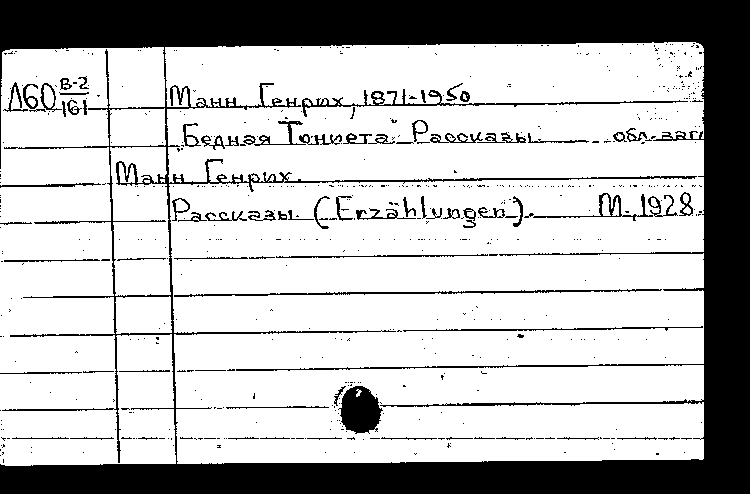 Л60 В-2/161 Манн, Генрих, 1871-1950
Бедная Тониета. Рассказы. обл.-загл
Манн Генрих.
Рассказы. (Erzählungen). М., 1928.